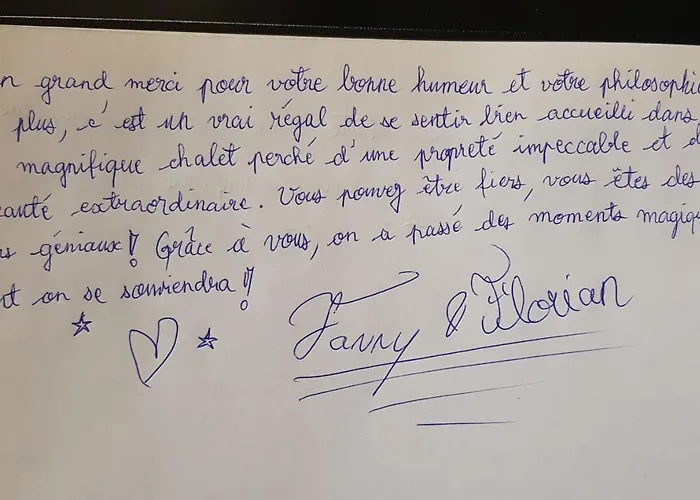 n grand merci pour votre bonne humeur et votre philosophie
plus, c'est un vrai régal de se sentir bien accueilli dans
magnifique chalet perché d'une propreté impeccable et d
eauté extraordinaire. Vous pouvez être fiers, vous êtes des
s géniaux! Grâce à vous, on a passé des moments magiqu
t on se souviendra!
Fanny & Florian